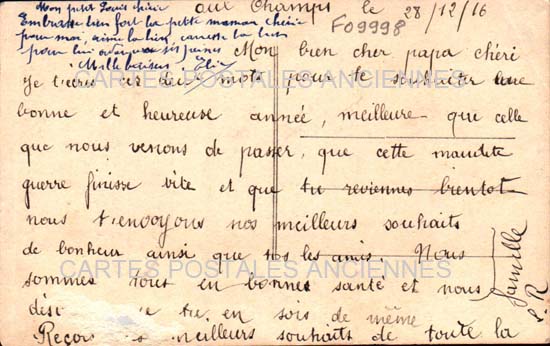 Mon petit Louis chéri
Embrasse bien fort la petite maman chérie
pour moi, aime la bien, caresse la bien
pour lui ses peines
Mille baisers
aux Champs le 28/12/16
F09998
Mon bien cher papa chéri
Je t'écris ces deux mots pour te souhaiter une
bonne et heureuse année, meilleure que celle
que nous venons de passer, que cette maudite
guerre finisse vite et que tu reviennes bientot
nous t'envoyons nos meilleurs souhaits
de bonheur ainsi que tos les amis. Nous
sommes tous en bonne santé et nous
dési e tu en sois de même
Reçois s meilleurs souhaits de toute la
famille
L. R
CARTES POSTALES ANCIENNES
CARTES POSTALES ANCIENNES